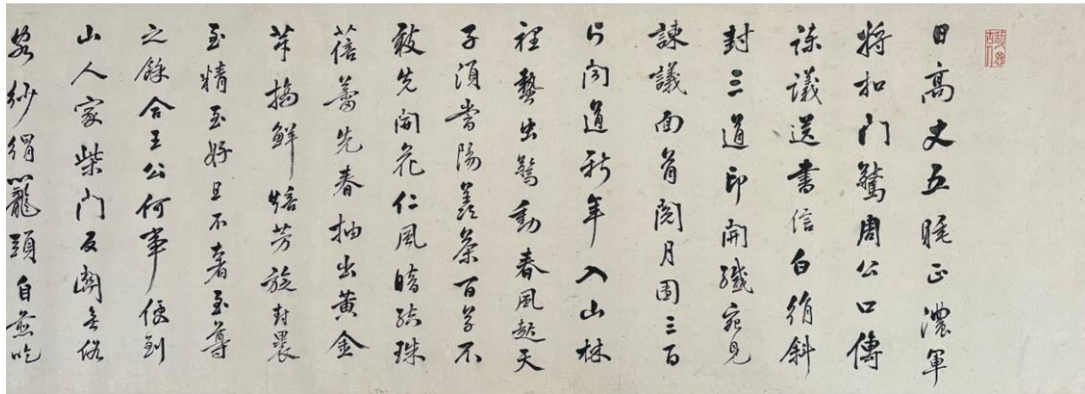 日高丈五睡正濃軍
將扣門驚周公口傳
諫議送書信白絹斜
封三道印開緘宛見
諫議面首閱月團三百
片聞道新年入山林
裡蟄虫驚動春風起天
子須嘗陽羨茶百草不
敢先開花仁風暗結珠
蓓蕾先春抽出黃金
芽摘鮮焙芳旋封裹
至精至好且不奢至尊
之餘合王公何事便到
山人家柴門反關無俗
客紗絹籠頭自煎吃